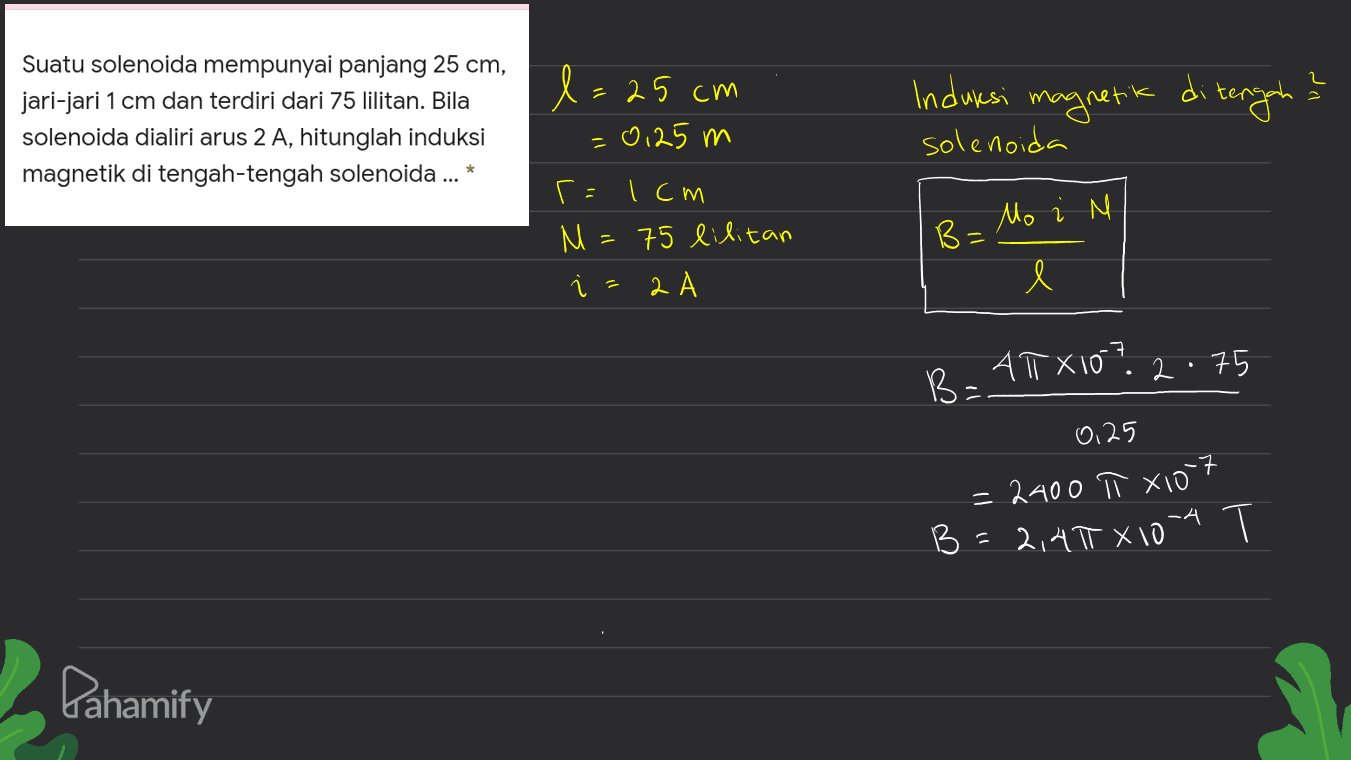 Suatu solenoida mempunyai panjang 25 cm,
jari-jari 1 cm dan terdiri dari 75 lilitan. Bila
solenoida dialiri arus 2 A, hitunglah induksi
magnetik di tengah-tengah solenoida ... *
l = 25 cm
= 0,25 m
r = 1 cm
N = 75 lilitan
i = 2 A
Induksi magnetik di tengah ?
solenoida
B = μ₀ i N / l
B = 4π × 10⁻⁷ . 2 . 75 / 0,25
= 2400 π × 10⁻⁷
B = 2,4π × 10⁻⁴ T
Pahamify